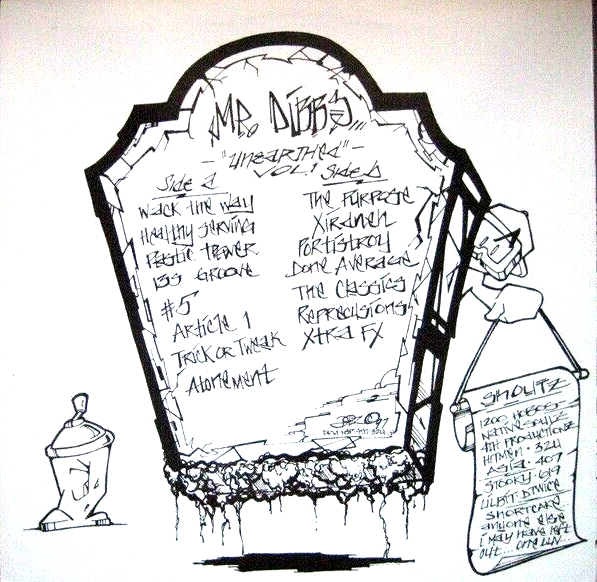 Mr. Dibbs...
- "Unearthed" -
Vol. 1
Side a
Wack the Way
Healthy Serving
Plastic Power
Groove
#5
Article 1
Trick or Tweak
Atonement
Side b
The Purpose
Xiramen
Portistroy
Done Average
The Classics
Reprecusions
Xtra FX
Shoutz
1200 Hobos
Native Soulz
4th Productionz
Hitmen 324
Asia 407
Stooky 619
Lilbit DTwice
Shortcake
anyone else
i may have left
out... one luv...